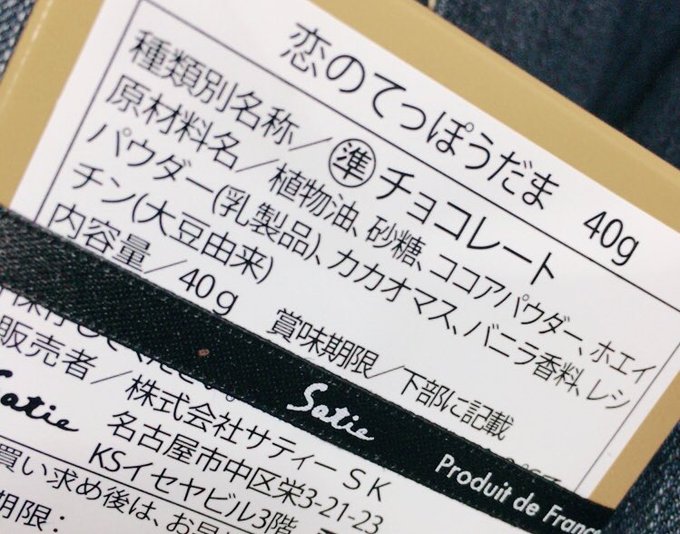 恋のてっぽうだま 40g
種類別名称／㊜チョコレート
原材料名／植物油、砂糖、ココアパウダー、ホエイ
パウダー(乳製品)、カカオマス、バニラ香料、レシ
チン(大豆由来)
内容量／40g 賞味期限／下部に記載
Satie Produit de Franc
販売者／株式会社サティーSK
Satie 名古屋市中区栄3-21-23
KSイセヤビル3階
買い求め後は、お早
期限: